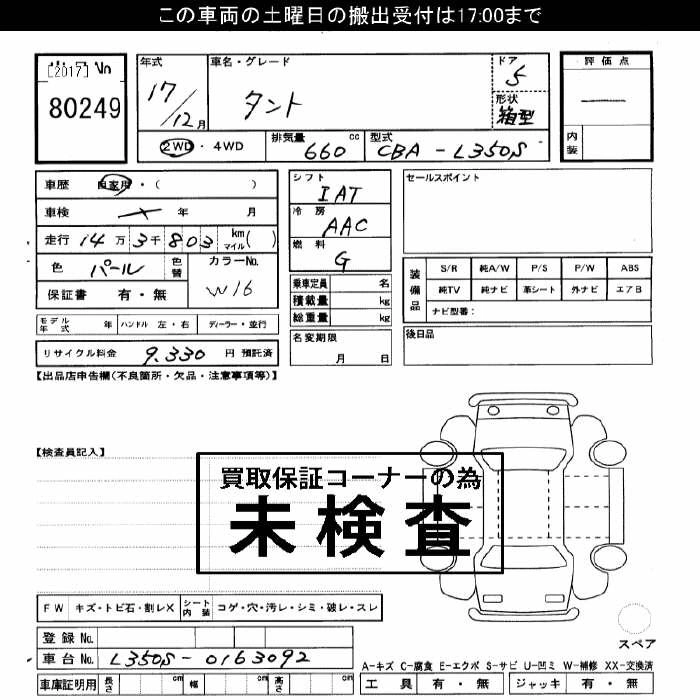 この車両の土曜日の搬出受付は17:00まで
[2017] No
80249
年式
17/12月
車名・グレード
タント
ドア
5
形状
箱型
評価点
内装
2WD・4WD
排気量
660 cc
型式
CBA - L350S
車歴 自家用・( )
車検 年 月
走行 14万 3千 803 km マイル ( )
色 パール 色替 カラーNo. W16
保証書 有・無
シフト
IAT
冷房
AAC
燃料
G
乗車定員 名
積載量 kg
総重量 kg
名変期限
月 日
セールスポイント
装備品
S/R 純A/W P/S P/W ABS
純TV 純ナビ 革シート 外ナビ エアB
ナビ型番:
後日品
モデル年式 年 ハンドル 左・右 ディーラー・並行
リサイクル料金 9,330 円 預託済
【出品店申告欄(不良箇所・欠品・注意事項等)】
【検査員記入】
買取保証コーナーの為
未検査
FW キズ・トビ石・割レX シート内装 コゲ・穴・汚レ・シミ・破レ・スレ
登録No.
車台No. L350S-0163092
車庫証明用 長さ cm 幅 cm 高さ cm
スペア
A-キズ C-腐食 E-エクボ S-サビ U-凹ミ W-補修 XX-交換済
工具 有・無 ジャッキ 有・無